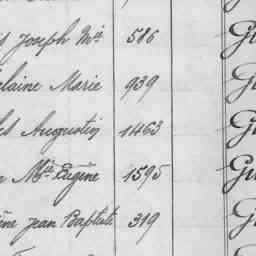 Joseph Mie 586 G
laine Marie 939 G
Augustin 1463 G
Mie Eugène 1595 Gu
Jean Baptiste 319 G